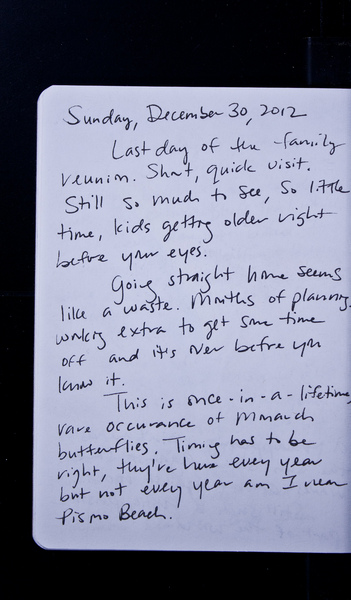 Sunday, December 30, 2012
Last day of the family
reunion. Short, quick visit.
Still so much to see, so little
time, kids getting older right
before your eyes.
Going straight home seems
like a waste. Months of planning,
working extra to get some time
off and it's over before you
know it.
This is once-in-a-lifetime,
rare occurance of Monarch
butterflies. Timing has to be
right, they're here every year
but not every year am I near
Pismo Beach.